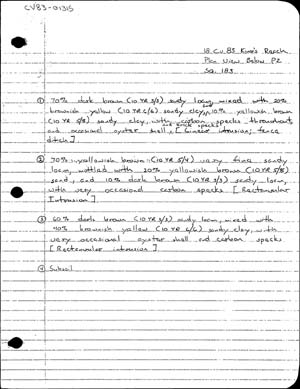 CV83-01315
18.CV.83 King's Reach
Plan View Below PZ
Sq. 183
① 70% dark brown (10 YR 3/3) sandy loam mixed with 20%
brownish yellow (10 YR 6/6) sandy clay, 10% yellowish brown
(10 YR 5/8) sandy clay, with carbon specks throughout
and brick specks
and occasional oyster shell, [Linear intrusion; fence
ditch]
② 70% yellowish brown (10 YR 5/4) very fine sandy
loam, mottled with 20% yellowish brown (10 YR 5/8)
sand, and 10% dark brown (10 YR 3/3) sandy loam,
with very occasional carbon specks [Rectangular
Intrusion]
③ 60% dark brown (10 YR 3/3) sandy loam, mixed with
40% brownish yellow (10 YR 6/6) sandy clay, with
very occasional oyster shell and carbon specks
[Rectangular intrusion]
④ Subsoil